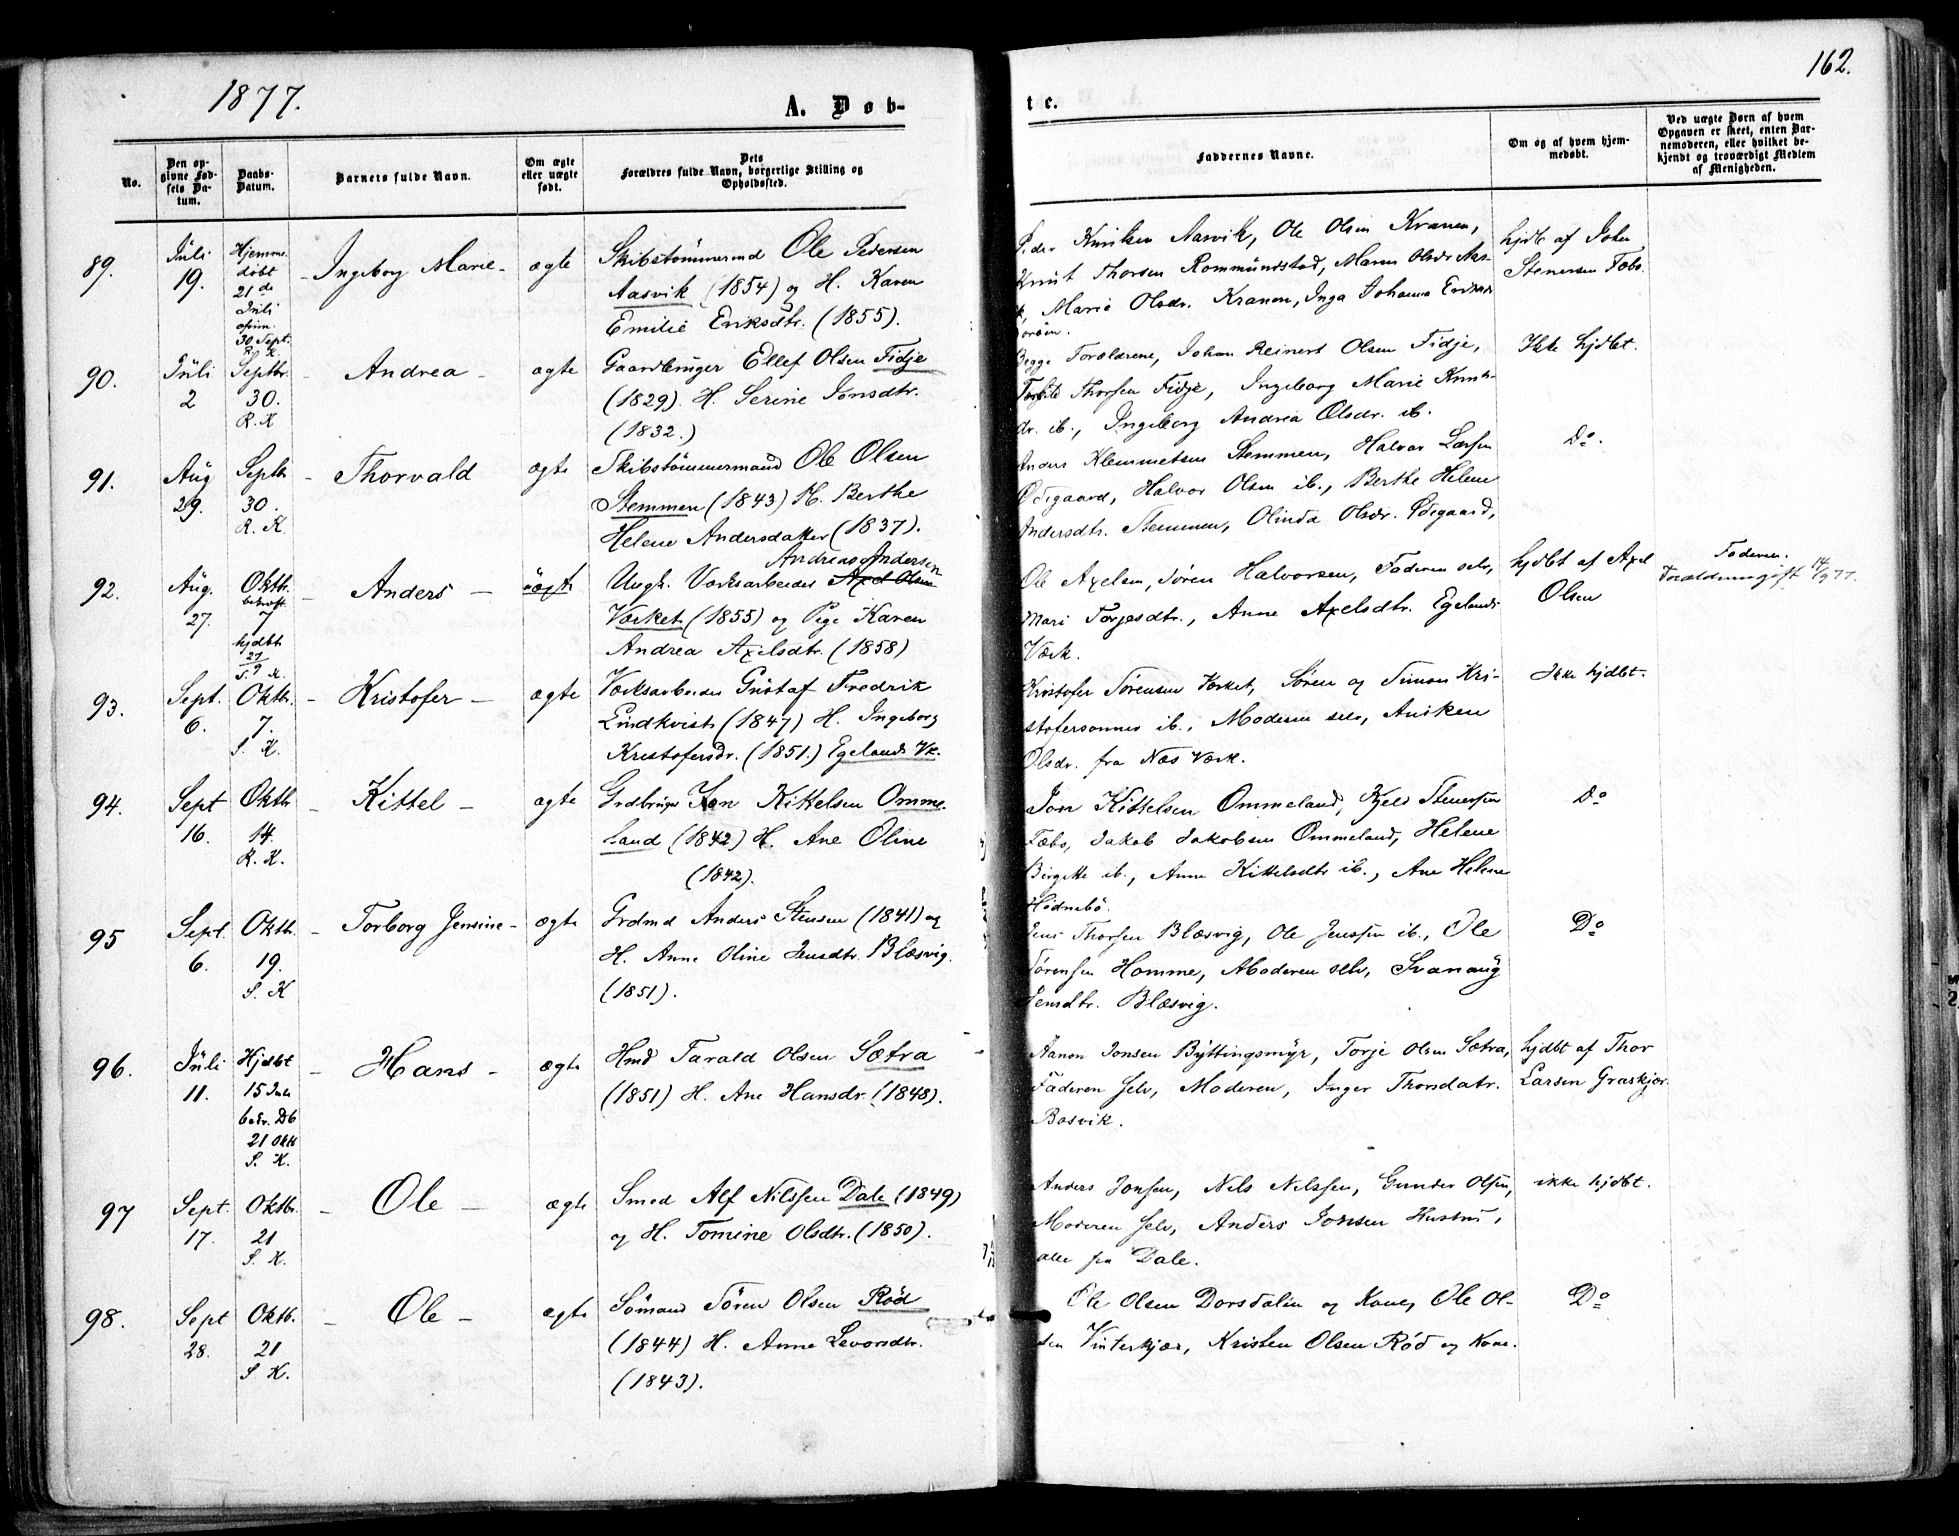 1877.
A. Døb-
No.
Den op-
givne Fød-
sels Da-
tum.
Daabs-
Datum.
Barnets fulde Navn.
Om ægte
eller uægte
født.
Dets
Forældres fulde Navn, borgerlige Stilling og
Opholdssted.
89.
Juli
19.
Hjemme
døbt
21de
Juli
30 Sept.
R. K.
Ingeborg Marie
ægte
Skibstømmermd Ole Pedersen
Aasvik (1854) og H. Karen
Emilie Eriksdtr. (1855).
90.
Juli
2
Septbr.
30.
R. K
Andrea
ægte
Gaardbruger Ellef Olsen Fidje
(1829). H. Serine Jonsdtr.
(1832.)
91.
Aug
29.
Septb
30.
R. K.
Thorvald
ægte
Skibstømmermand Ole Olsen
Stemmen (1843) H. Berthe
Helene Andersdatter (1837).
92.
Aug.
27.
Oktbr.
bekræft.
7
hjdbt
27/9
S. K.
Anders
uægte
Andreas Andersen
Ungk. Værksarbeider Axel Olsen
Værket (1855) og Pige Karen
Andrea Axelsdtr. (1858)
93.
Sept.
6.
Oktbr.
7.
S. K.
Kristofer
ægte
Værksarbeider Gustaf Fredrik
Lindkvist (1847) H. Ingeborg
Kristofersdr. (1851.) Egelands Vk.
94.
Sept
16.
Oktb
14.
R. K.
Kittel
ægte
Grdbruger Jon Kittelsen Omme-
land (1842) H. Ane Oline
(1842).
95
Sept.
6.
Oktb.
19.
S. K
Torborg Jensine
ægte
Grdmd Anders Stensen (1841) og
H. Anne Oline Jensdtr. Blæsvig.
(1851).
96.
Juli
11.
Hjdbt
15 Juli
bekr. Db
21 Oktb
S. K.
Hans
ægte
Hmd Tarald Olsen Sætra
(1851) H. Ane Hansdr. (1848).
97
Sept.
17.
Oktbr.
21
S. K.
Ole
ægte
Smed Alf Nilssen Dale (1849)
og H. Tomine Olsdtr. (1850).
98.
Sept
28.
Oktb.
21
S K.
Ole
ægte
Sømand Søren Olsen Rød
(1844) H. Anne Levorsdtr.
(1843).
162.
te.
Faddernes Navne.
Om og af hvem hjem-
medøbt.
Ved uægte Børn af hvem
Opgaven er skeet, enten Bar-
nemoderen, eller hvilket be-
kjendt og troværdigt Medlem
af Menigheden.
Peder Knutsen Aasvik, Ole Olsen Kranen,
Knut Thorsen Rommundstad, Maren Olsdr
Marie Olsdr. Kranen, Inga Johanna
hjdbt af John
Stenersen Fæbo.
Begge Forældrene, Johan Reinert Olsen Fidje,
Thorsen Fidje, Ingeborg Marie Knuts-
dr. ib., Ingeborg Andrea Olsdr. ib.
Ikke hjdbt.
Anders Klemmetsen Stemmen, Halvor Larsen
Ødegaard, Halvor Olsen ib., Berthe Helene
Andersdtr. Stemmen, Olinda Olsdr. Ødegaard,
Do.
Ole Axelsen, Søren Halvorsen, Faderen selv,
Mari Torjesdtr., Anne Axelsdtr. Egelands
Værk.
hjdbt af Axel
Olsen
Faderen.
Forældrene gift 14/9 77.
Kristofer Sørensen Værket, Søren og Simon Kri-
stofersønner ib., Moderen selv, Aniken
Olsdr. fra Næs Værk.
Ikke hjdbt.
Jon Kittelsen Ommeland, Kjeld Stenersen
Fæbo, Jakob Jakobsen Ommeland, Helene
Birgitte ib., Anne Kittelsdtr ib., Ane Helene
Hødnebø.
Do
Jens Thorsen Blæsvig, Ole Jenssen ib., Ole
Sørensen Homme, Moderen selv, Svanaug
Jensdtr. Blæsvig.
Do
Aanon Jonsen Byttingsmyr, Torje Olsen Sætra,
Faderen selv, Moderen, Inger Thorsdatr.
Bosvik.
hjdbt af Thor
Larsen Graskjær.
Anders Jonsen, Nils Nilssen, Gunder Olsen,
Moderen selv, Anders Jonsen Hustru,
alle fra Dale.
ikke hjdbt.
Ole Olsen Dorsdalen og Kone, Ole Ol-
sen Vinterkjær, Kristen Olsen Rød og Kone.
Do